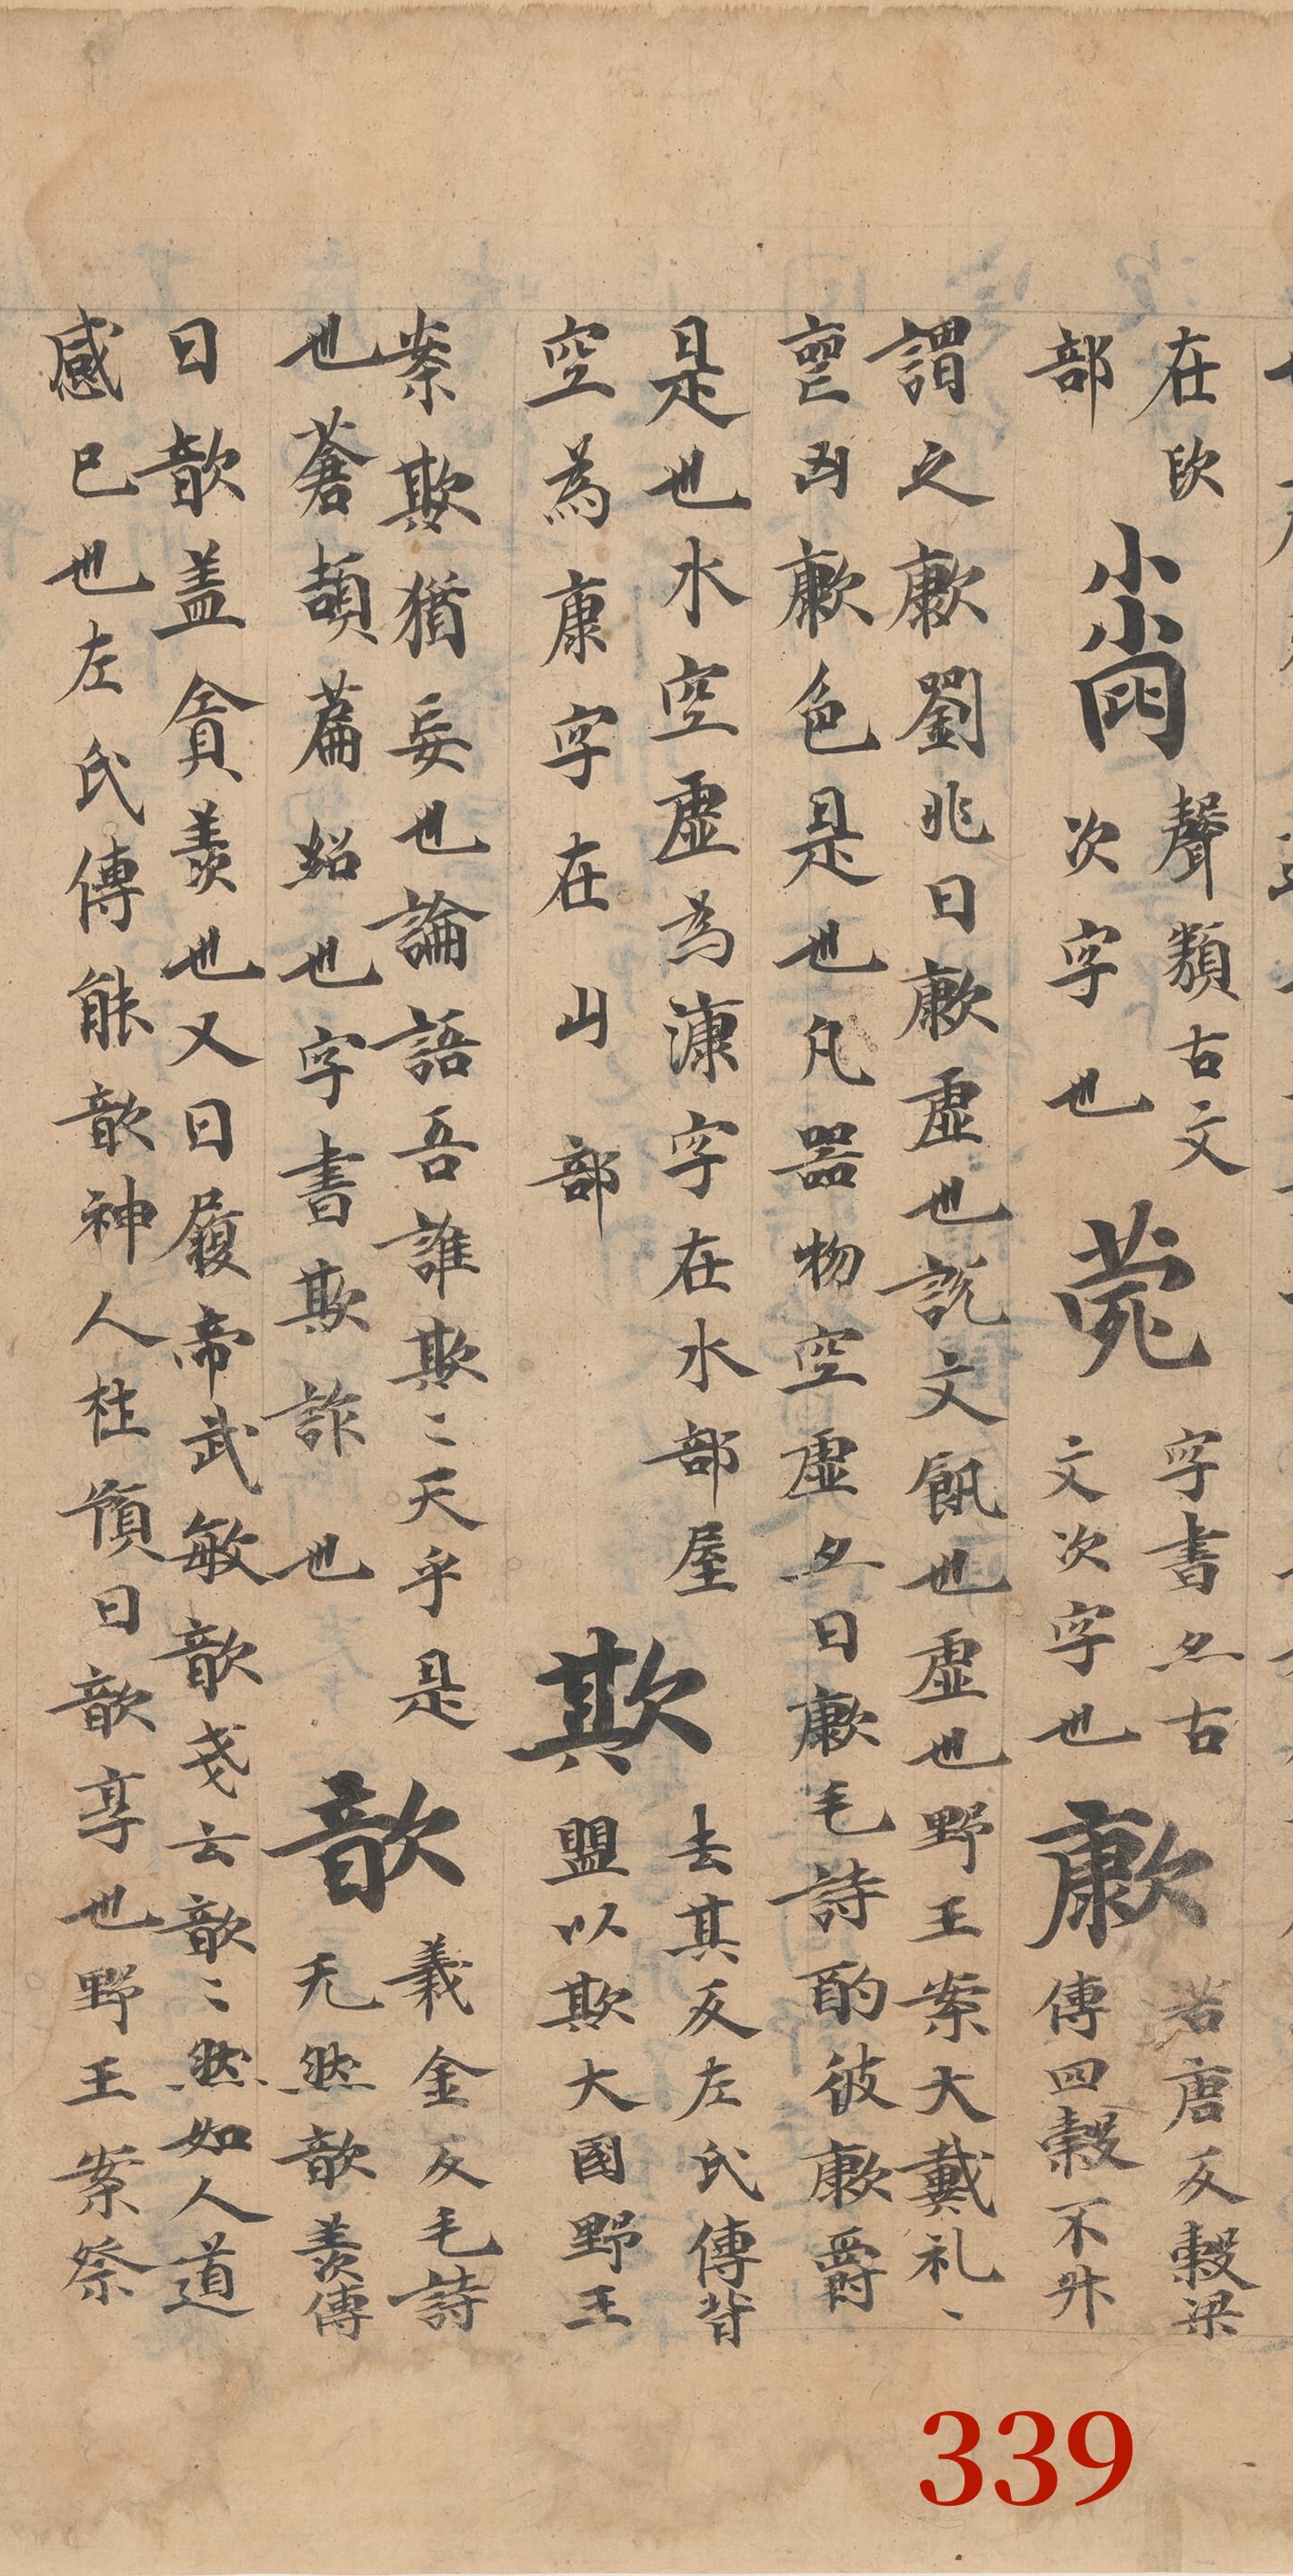 在欬
部
𣣌
聲類古文
次字也
薨
字書亦古
文次字也
歉
苦唐反穀梁
傳四穀不升
謂之歉劉兆曰歉虛也說文飢也虛也野王案大戴礼、
凶歉色是也凡器物空虛亦曰歉毛詩酌彼歉爵
是也水空虛為漮字在水部屋
空為康字在山部
欺
去其反左氏傳背
盟以欺大國野王
案欺猶妄也論語吾誰欺〻天乎是
也蒼頡篇紿也字書欺詐也
歆
羲金反毛詩
无然歆羨傳
曰歆盖貪羨也又曰履帝武敏歆戔云歆〻然如人道
感已也左氏傳能歆神人杜預曰歆享也野王案祭
339